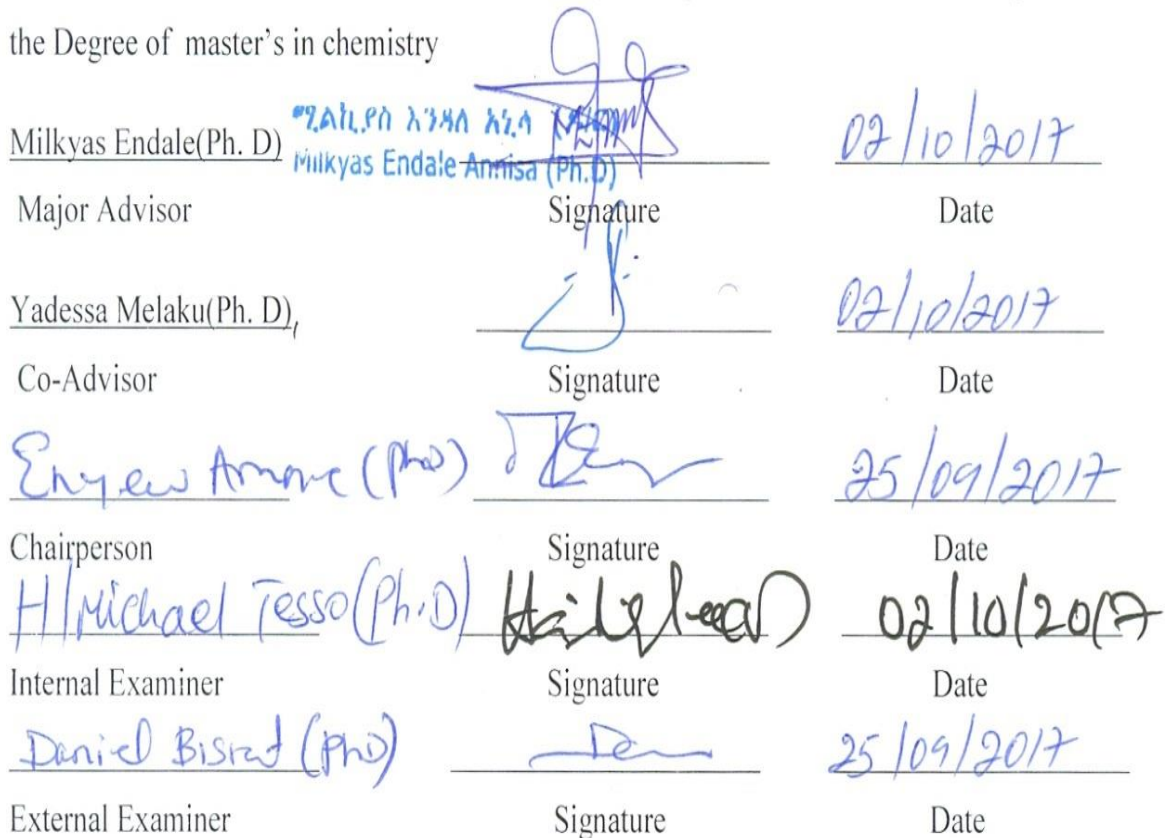 the Degree of master’s in chemistry
ሚልኪያስ እንዳለ አኒሳ
Milkyas Endale(Ph. D) Milkyas Endale Annisa (Ph.D) 02/10/2017
Major Advisor Signature Date
Yadessa Melaku(Ph. D), 02/10/2017
Co-Advisor Signature Date
Enyew (PhD) 25/09/2017
Chairperson Signature Date
H/Michael Tesso (Ph.D) 02/10/2017
Internal Examiner Signature Date
Daniel Bisrat (PhD) 25/09/2017
External Examiner Signature Date